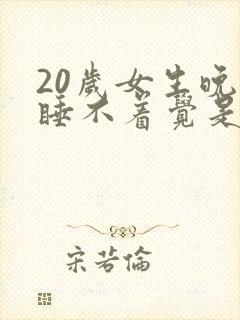 20歲女生晚
睡不着覺是
宋若倫